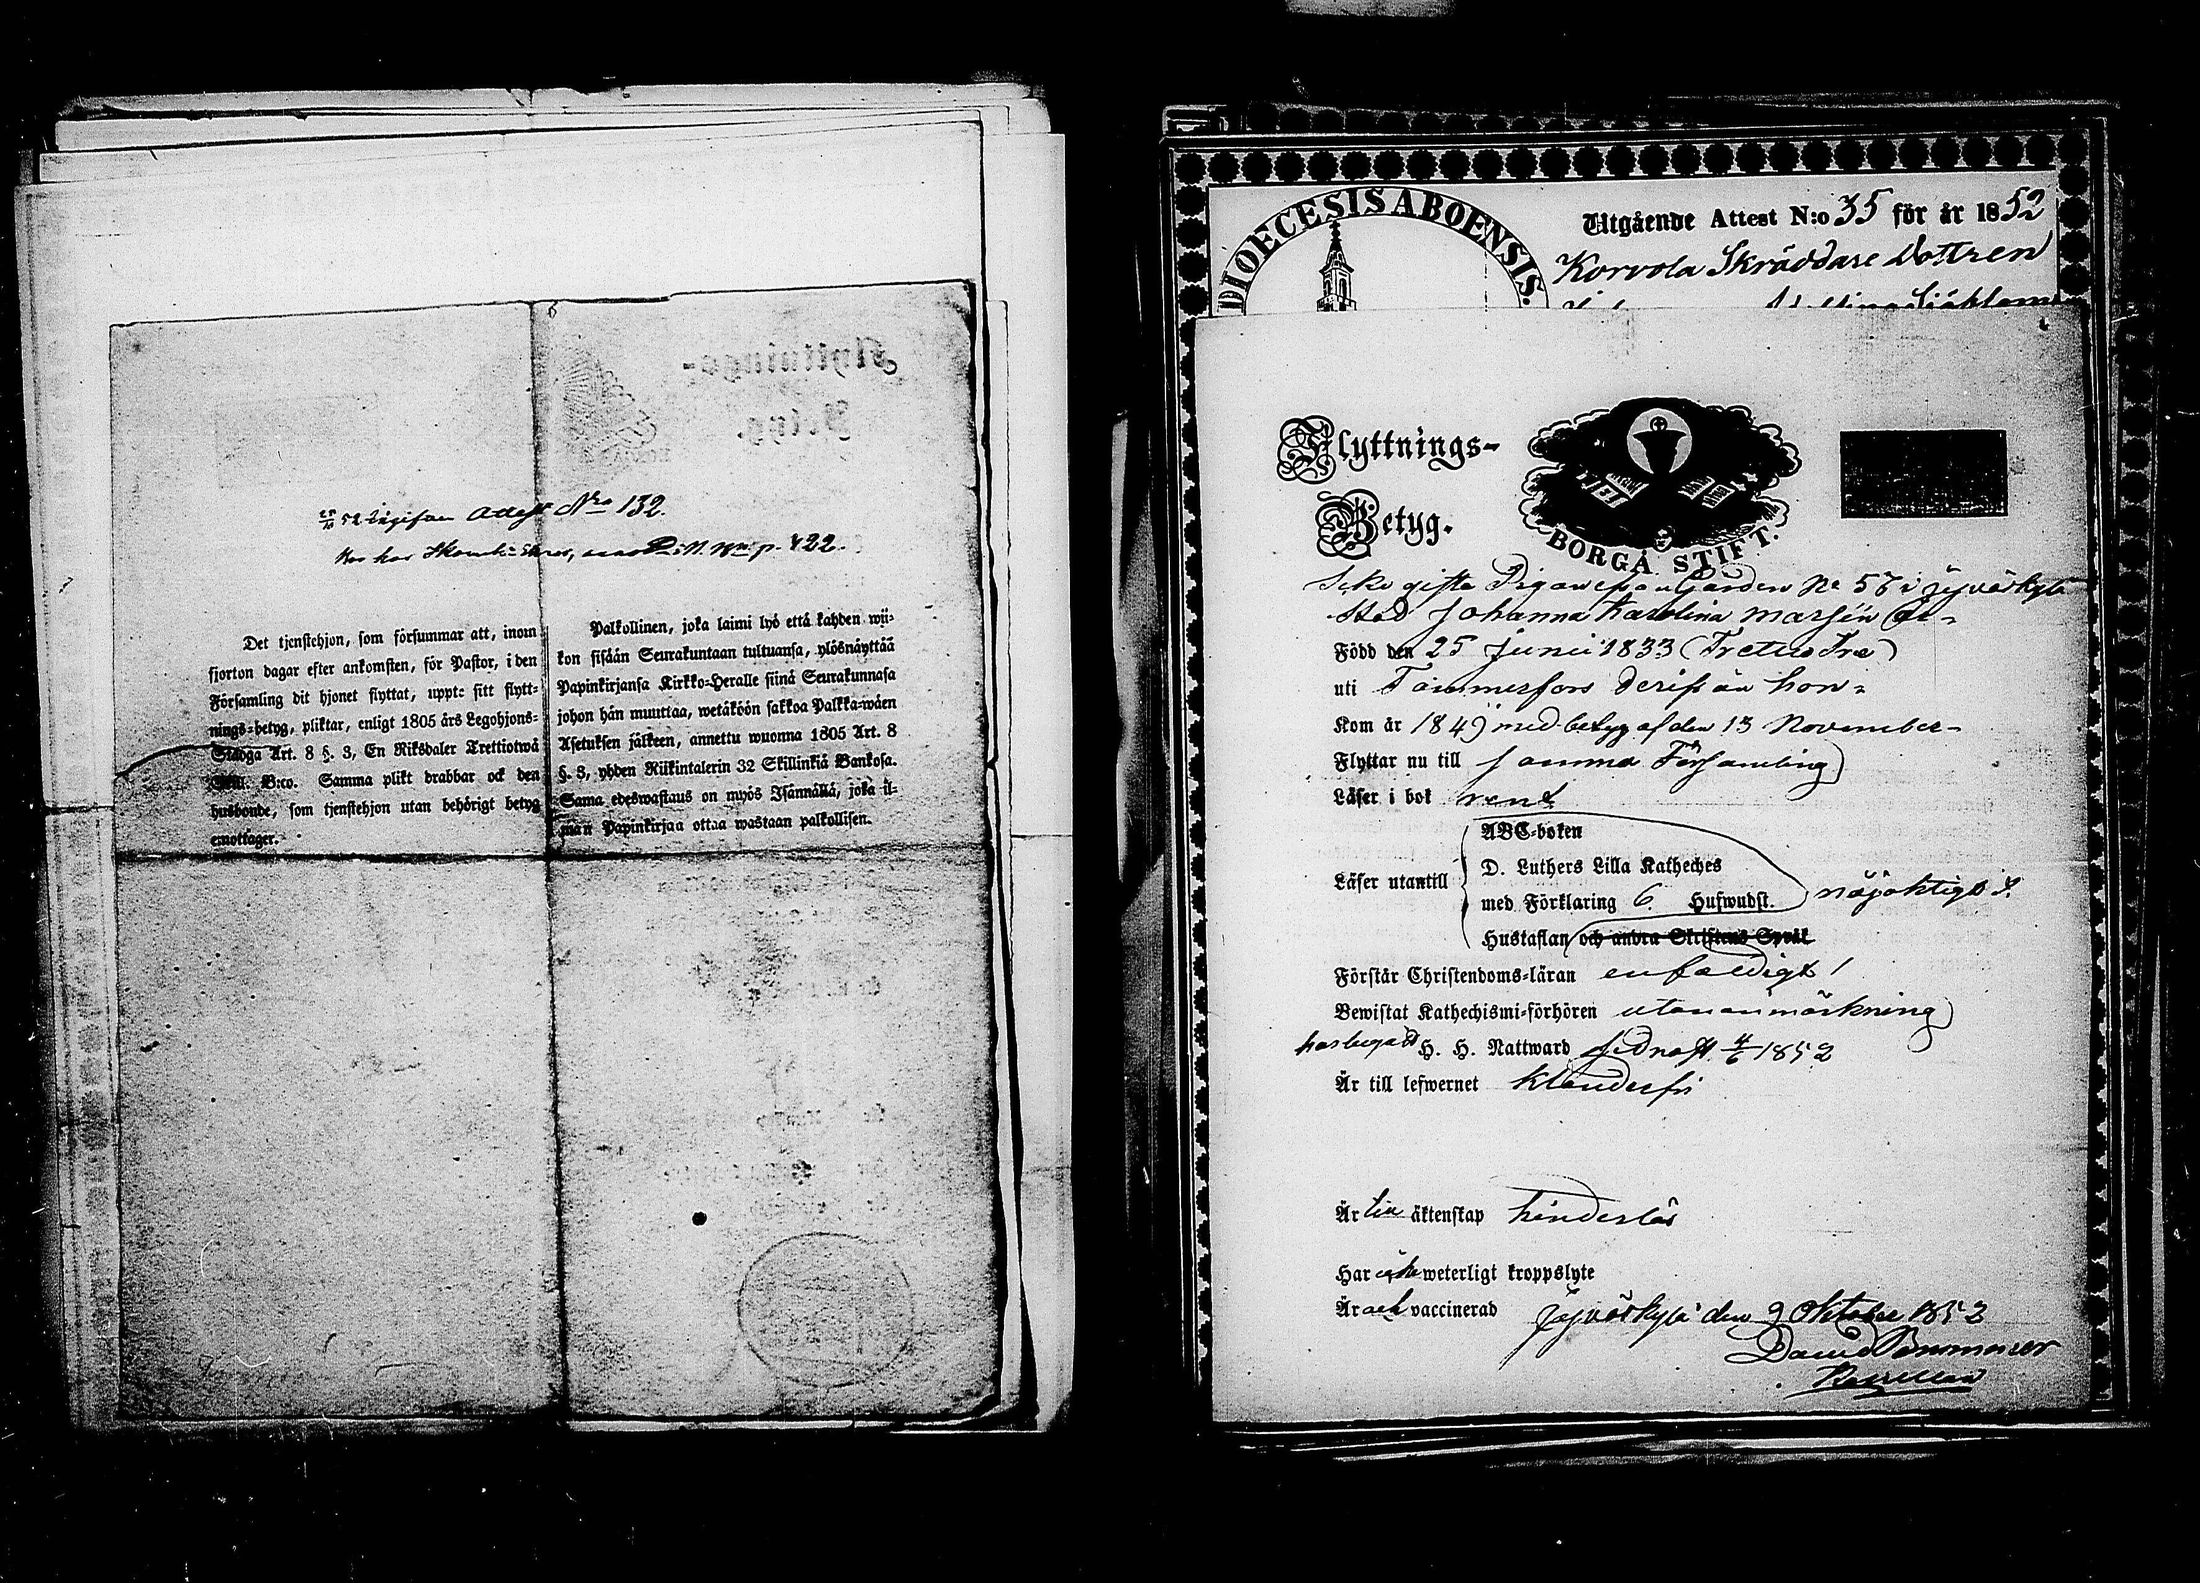 25/10 52 Attest Nro 132.
p. 422.
Det tjenstehjon, som försummar att, inom
fjorton dagar efter ankomsten, för Pastor, i den
Församling dit hjonet flyttat, uppte sitt flytt-
nings-betyg, pliktar, enligt 1805 års Legohjons-
Stadga Art. 8 §. 3, En Riksdaler Trettiotwå
Skill. B:co. Samma plikt drabbar ock den
husbonde, som tjenstehjon utan behörigt betyg
emottager.
Palkollinen, joka laimi lyö että kahden wii-
kon sisään Seurakuntaan tultuansa, ylösnäyttää
Papinkirjansa Kirkko-Heralle siinä Seurakunnasa
johon hän muuttaa, wetäköön sakkoa Palkka-wäen
Asetuksen jälkeen, annettu wuonna 1805 Art. 8
§. 3, yhden Riikintalerin 32 Skillinkiä Bankosa.
Sama edeswastaus on myös Isännällä, joka il-
man Papinkirjaa ottaa wastaan palkollisen.
DIOECESIS ABOENSIS.
Utgående Attest N:o 35 för år 1852
Korvola Skräddare Dottren
Flyttnings-
Betyg.
BORGÅ STIFT.
Icke gifta Pigan ifrån Gården No 57 i Jyväskylä
Stad Johanna Karolina Marsén är
Född den 25 Junii 1833 (Trettio Tre)
uti Tammerfors derifrån hon
Kom år 1849 med betyg af den 13 November
Flyttar nu till samma Församling
Läser i bok rent
ABC-boken
D. Luthers Lilla Katheches
Läser utantill
med Förklaring 6. Hufwudst. nöjaktigt
Hustaflan och andra Skriftens Språk
Förstår Christendoms-läran enfaldigt
Bewistat Kathechismi-förhören utan anmärkning
har begått H. H. Nattward sednast 4/6 1852
Är till lefwernet klanderfri
Är till äktenskap hinderlös
Har icke weterligt kroppslyte
Är ock vaccinerad Jyväskylä den 9 Oktober 1852